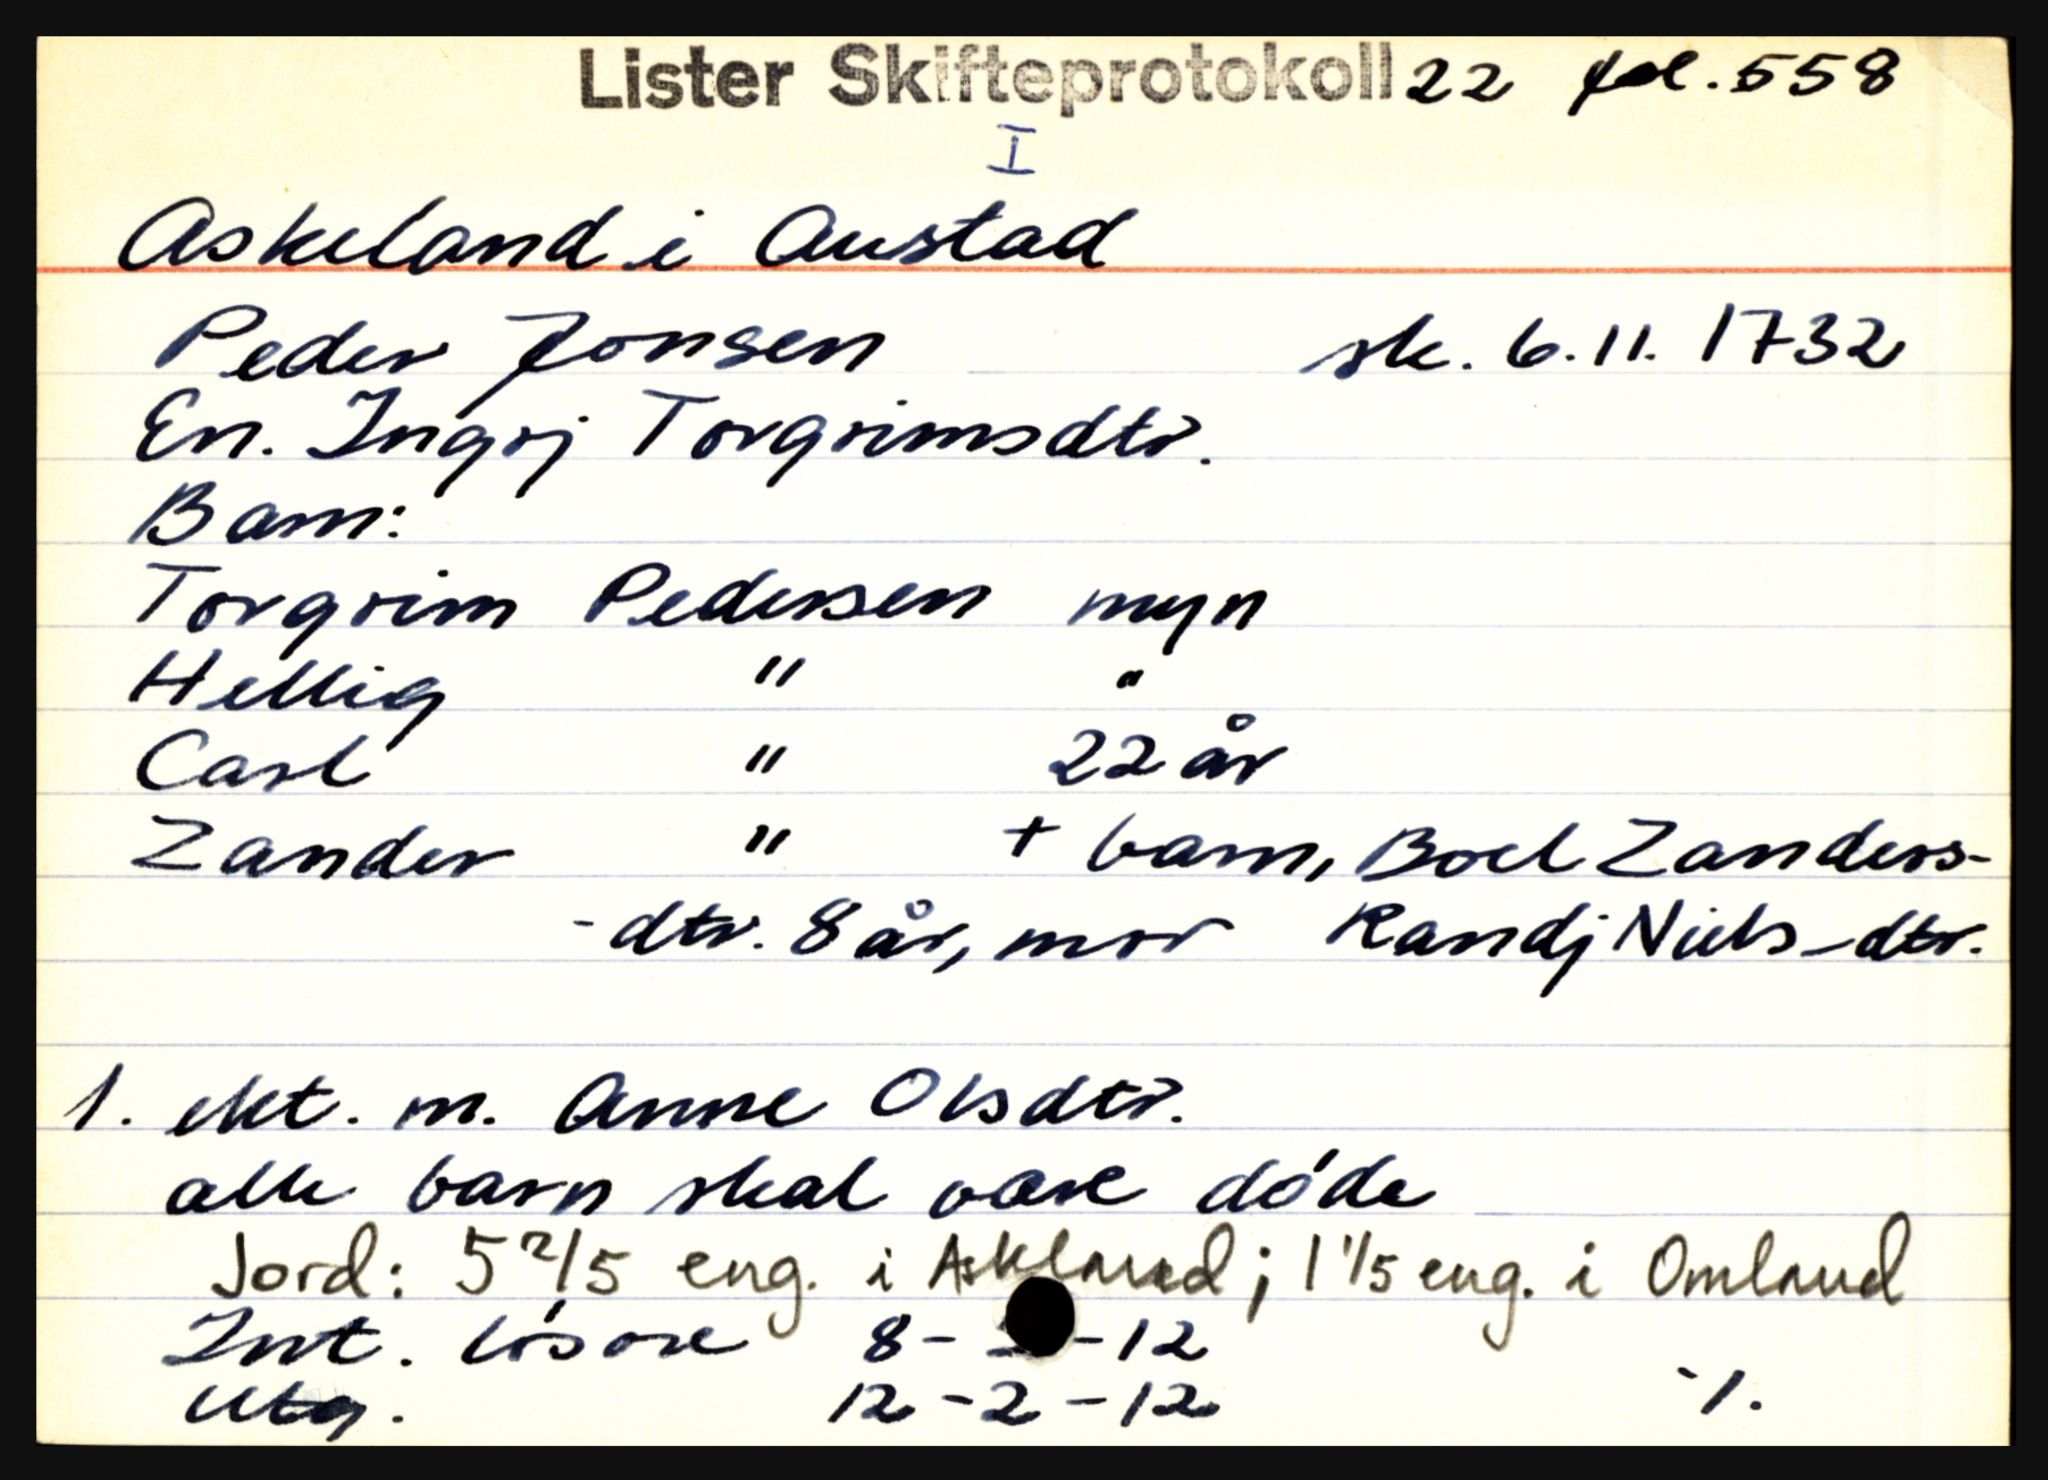 Lister Skifteprotokoll 22 fol. 558
I
Askeland i Austad
Peder Jonsen sk. 6.11. 1732
En. Ingrj Torgrimsdtr.
Barn:
Torgrim Pedersen myn
Hellig " "
Carl " 22 år
Zander " + barn, Boel Zanders-
-dtr. 8 år, mor Randj Niels-dtr.
1. ekt. m. Anne Olsdtr.
alle barn skal være døde
Jord: 5 2/5 eng. i Askland; 1 1/5 eng. i Omland
Int. løsøre 8- -12
Utg. 12-2-12 -/.